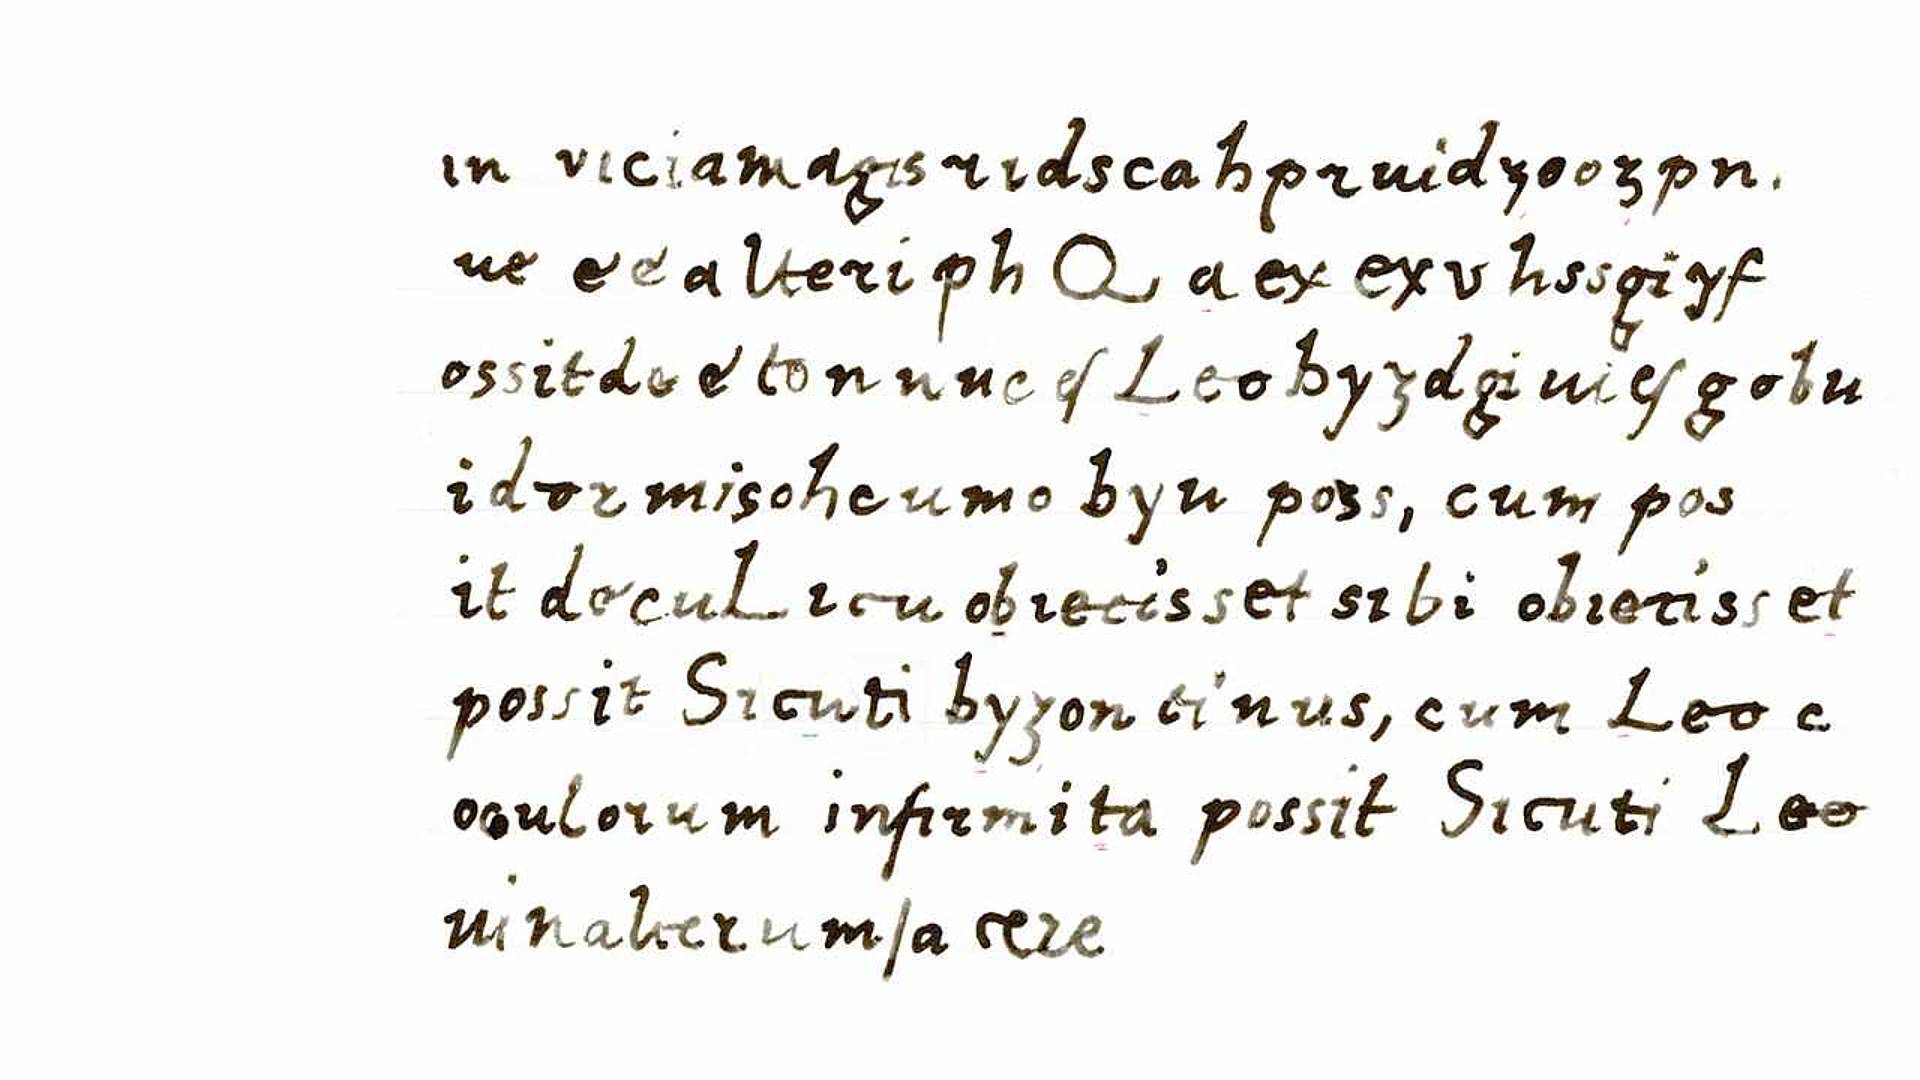 in viciamagisridscahpruidzoozpn.
ue edalteriph Q a ex exvhssgiyf
ossitdeedtonnuncęſ Leobyzdgiuięſgobu
idormisohcumo byu poss, cum pos
it docuL icu obiecisset sibi obietisset
possit Sicuti byzontinus, cum Leo c
oculorum infirmita possit Sicuti Leo
uinalterum/a cere